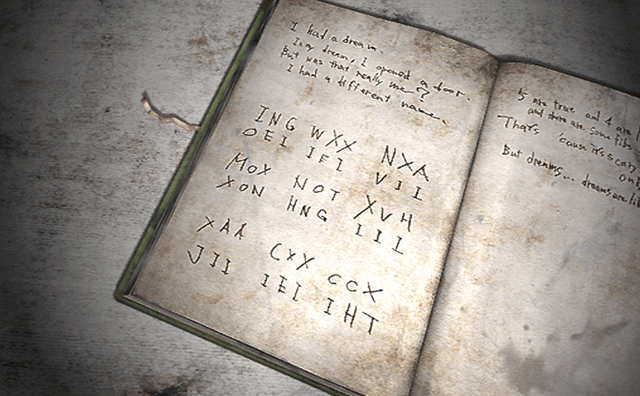 I had a dream.
In my dream, I opened a door.
But was that really me??
I had a different name.
ING WXX NXA
OEI IFI VII
MOX NOT XVH
XON HNG III
XAA CXX CCX
JII IEI IHT
5 are true and 4 are
and there are some
That's 'cause it's scary
But dreams... dreams are